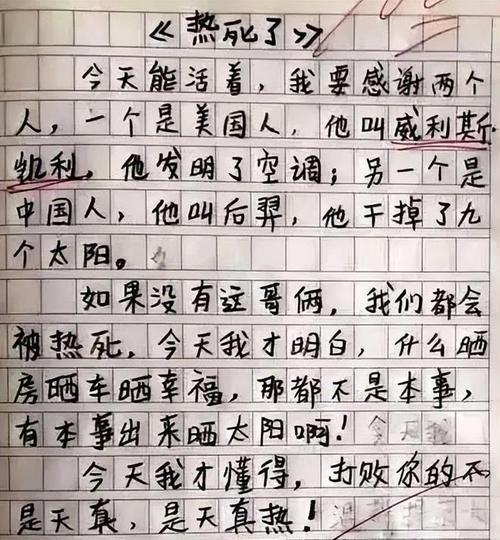 《热死了》
今天能活着，我要感谢两个
人，一个是美国人，他叫威利斯·
凯利，他发明了空调；另一个是
中国人，他叫后羿，他干掉了九
个太阳。
如果没有这哥俩，我们都会
被热死，今天我才明白，什么晒
房晒车晒幸福，那都不是本事，
有本事出来晒太阳啊！
今天我才懂得，打败你的不
是天真，是天真热！